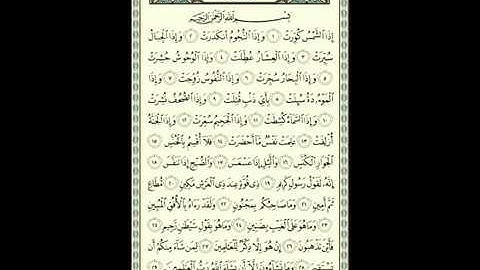 بِسْمِ اللَّهِ الرَّحْمَٰنِ الرَّحِيمِ
إِذَا الشَّمْسُ كُوِّرَتْ ١ وَإِذَا النُّجُومُ انكَدَرَتْ ٢ وَإِذَا الْجِبَالُ
سُيِّرَتْ ٣ وَإِذَا الْعِشَارُ عُطِّلَتْ ٤ وَإِذَا الْوُحُوشُ حُشِرَتْ
٥ وَإِذَا الْبِحَارُ سُجِّرَتْ ٦ وَإِذَا النُّفُوسُ زُوِّجَتْ ٧ وَإِذَا
الْمَوْءُۥدَةُ سُئِلَتْ ٨ بِأَيِّ ذَنۢبٍ قُتِلَتْ ٩ وَإِذَا الصُّحُفُ نُشِرَتْ
١٠ وَإِذَا السَّمَاءُ كُشِطَتْ ١١ وَإِذَا الْجَحِيمُ سُعِّرَتْ ١٢ وَإِذَا الْجَنَّةُ
أُزْلِفَتْ ١٣ عَلِمَتْ نَفْسٌ مَّا أَحْضَرَتْ ١٤ فَلَا أُقْسِمُ بِالْخُنَّسِ ١٥
الْجَوَارِ الْكُنَّسِ ١٦ وَاللَّيْلِ إِذَا عَسْعَسَ ١٧ وَالصُّبْحِ إِذَا تَنَفَّسَ ١٨
إِنَّهُ لَقَوْلُ رَسُولٍ كَرِيمٍ ١٩ ذِي قُوَّةٍ عِندَ ذِي الْعَرْشِ مَكِينٍ ٢٠ مُّطَاعٍ
ثَمَّ أَمِينٍ ٢١ وَمَا صَاحِبُكُم بِمَجْنُونٍ ٢٢ وَلَقَدْ رَءَاهُ بِالْأُفُقِ الْمُبِينِ
٢٣ وَمَا هُوَ عَلَى الْغَيْبِ بِضَنِينٍ ٢٤ وَمَا هُوَ بِقَوْلِ شَيْطَانٍ رَّجِيمٍ ٢٥
فَأَيْنَ تَذْهَبُونَ ٢٦ إِنْ هُوَ إِلَّا ذِكْرٌ لِّلْعَالَمِينَ ٢٧ لِمَن شَاءَ مِنكُمْ أَن
يَسْتَقِيمَ ٢٨ وَمَا تَشَاءُونَ إِلَّا أَن يَشَاءَ اللَّهُ رَبُّ الْعَالَمِينَ ٢٩